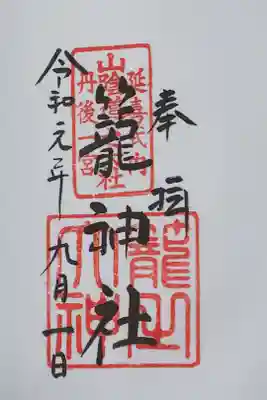 奉拝
延喜式内
山陰道一大社
丹後一宮
籠神社
籠之大神
令和元年九月一日